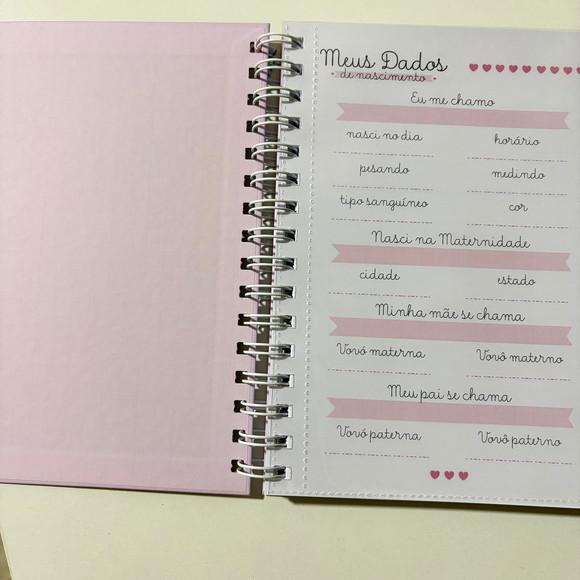 Meus Dados
de nascimento
Eu me chamo
nasci no dia horário
pesando medindo
tipo sanguíneo cor
Nasci na Maternidade
cidade estado
Minha mãe se chama
Vovó materna Vovô materno
Meu pai se chama
Vovó paterna Vovô paterno